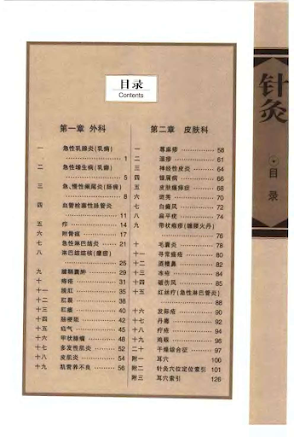 目录
Contents
第一章 外科
一 急性乳腺炎(乳痈)
1
二 急性增生病(乳癖)
5
三 急、慢性阑尾炎(肠痈)
8
四 血管栓塞性脉管炎
11
五 疖 14
六 附骨疽 17
七 急性淋巴结炎 21
八 淋巴结结核(瘰疬)
25
九 腱鞘囊肿 29
十 痔疮 31
十一 脱肛 35
十二 肛裹 38
十三 肛瘘 40
十四 脑梗死 42
十五 疝气 45
十六 甲状腺瘤 48
十七 多发性疖炎 52
十八 皮肌炎 54
十九 肠营养不良 56
第二章 皮肤科
一 荨麻疹 58
二 湿疹 61
三 神经性皮炎 64
四 银屑病 66
五 皮肤瘙痒症 68
六 斑秃 70
七 白癜风 72
八 扁平疣 74
九 带状疱疹(缠腰火丹)
76
十 毛囊炎 78
十一 寻常痤疮 80
十二 酒糟鼻 82
十三 冻疮 84
十四 破伤风 85
十五 红丝疔(急性淋巴管炎)
88
十六 发际疮 90
十七 丹毒 92
十八 疔疮 94
十九 鸡眼 96
二十 干燥综合征 97
附一 耳穴 100
附二 针灸穴位定位索引 101
附三 耳穴索引 126
针灸
目录